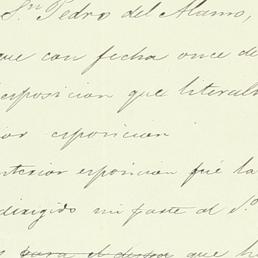 Sn Pedro del Alamo,
que con fecha once de
esposicion que literal
or esposicion
nterior esposicion fué la
dirigido mi parte al S.
que h